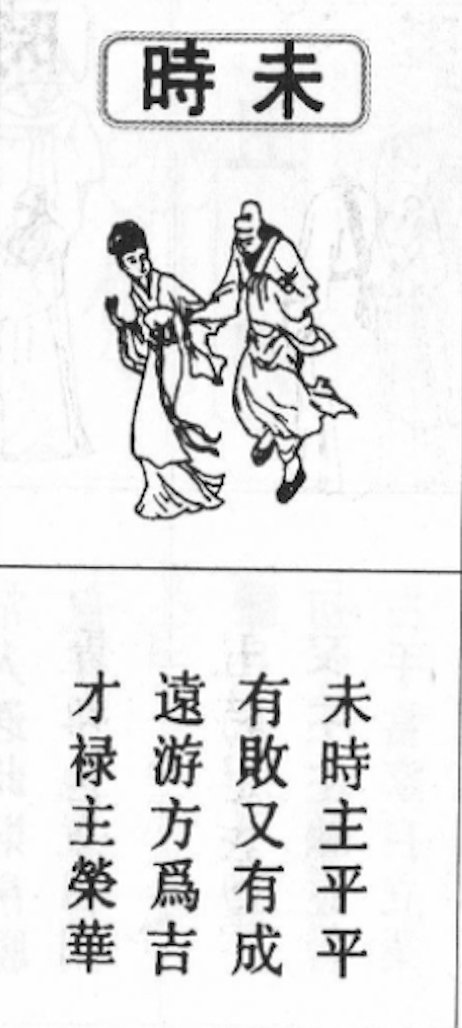 未時
未時主平平
有敗又有成
遠游方爲吉
才禄主榮華